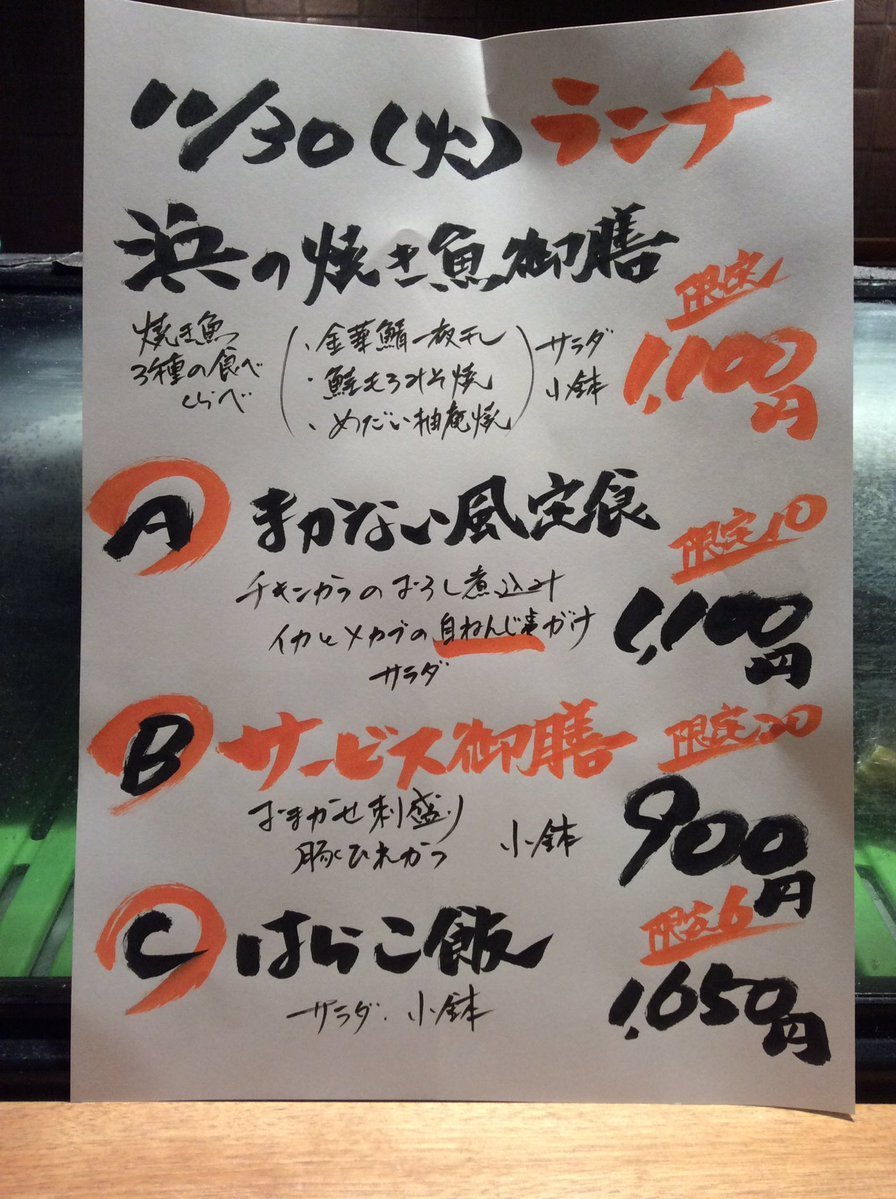 11/30(火)ランチ
浜の焼き魚御膳
限定
1,100円
焼き魚
3種の食べ
くらべ
・金華鯖一夜干し
・鮭もろみそ焼
・めだい柚庵焼
サラダ
小鉢
A まかない風定食
限定10
1,100円
チキンカツのおろし煮込み
イカとメカブの自ねんじょがけ
サラダ
B サービス御膳
限定20
900円
おまかせ刺盛り
豚ひれかつ
小鉢
C はらこ飯
限定6
1,650円
サラダ・小鉢